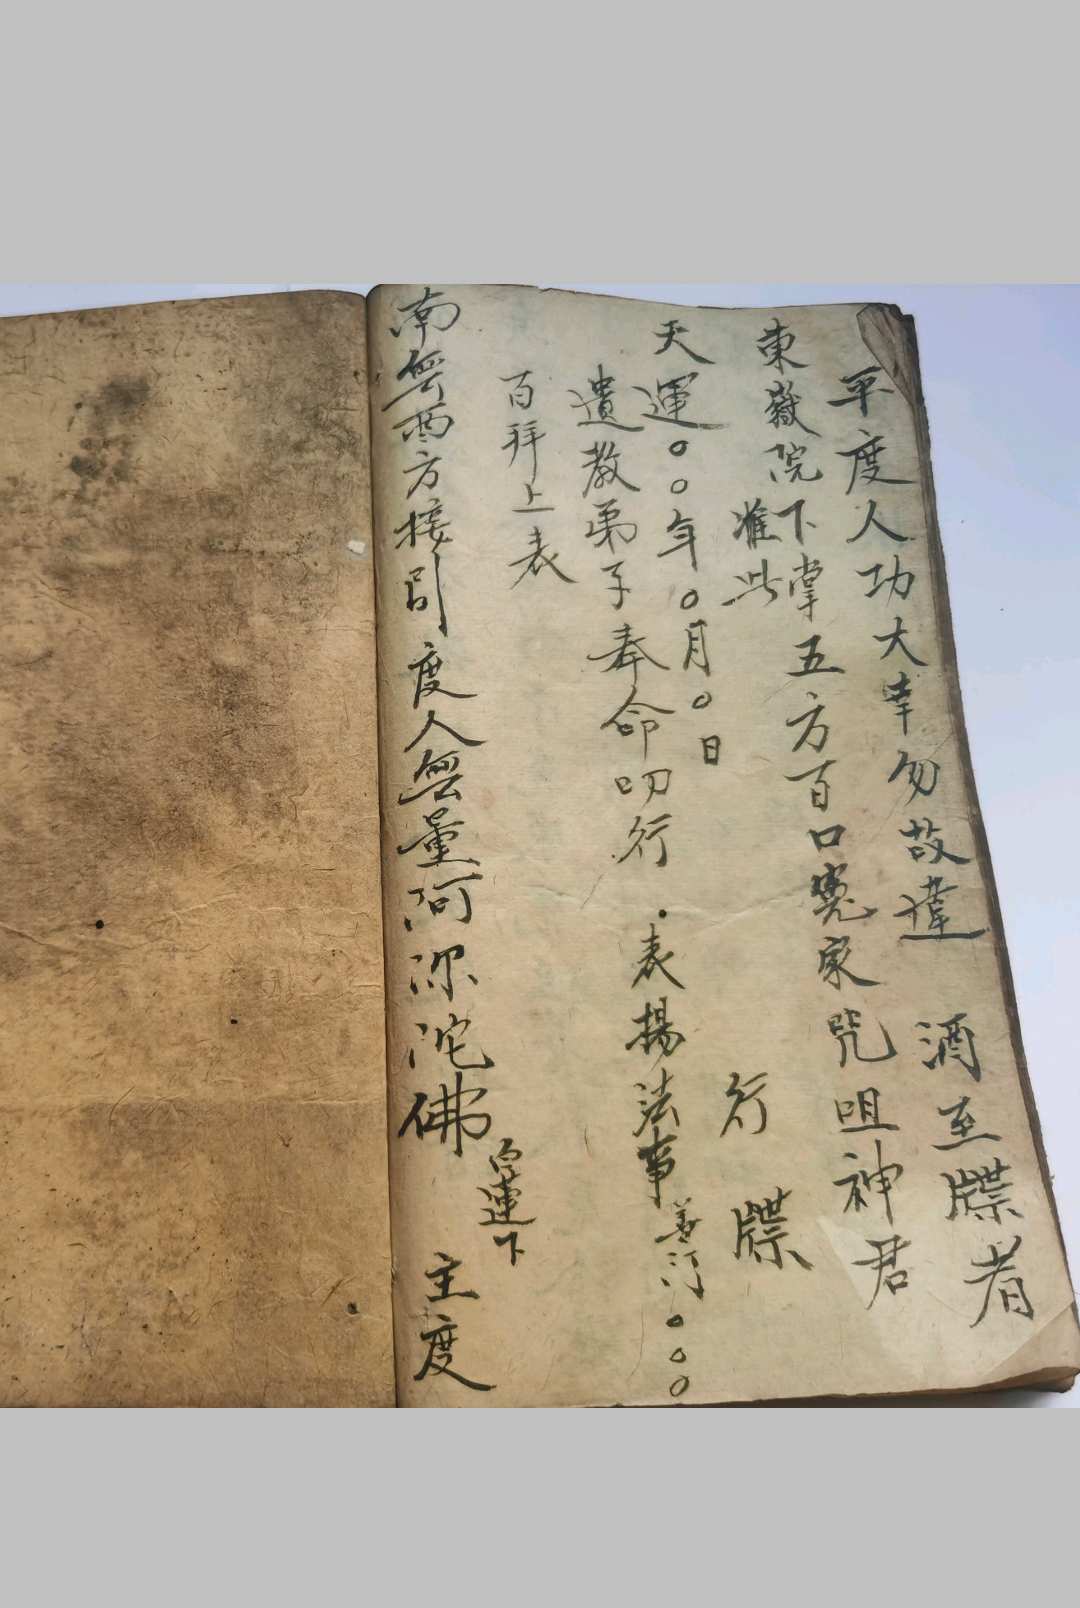 平度人功大幸勿故違 酒至牒者
東嶽院下掌五方百口冤家咒咀神君
准此 行 牒
天運○○年○月○日
遺教弟子奉命叨行 表揚法事 善汀○○○
百拜上表
南無西方接引度人無量阿弥陀佛 白蓮下 主度